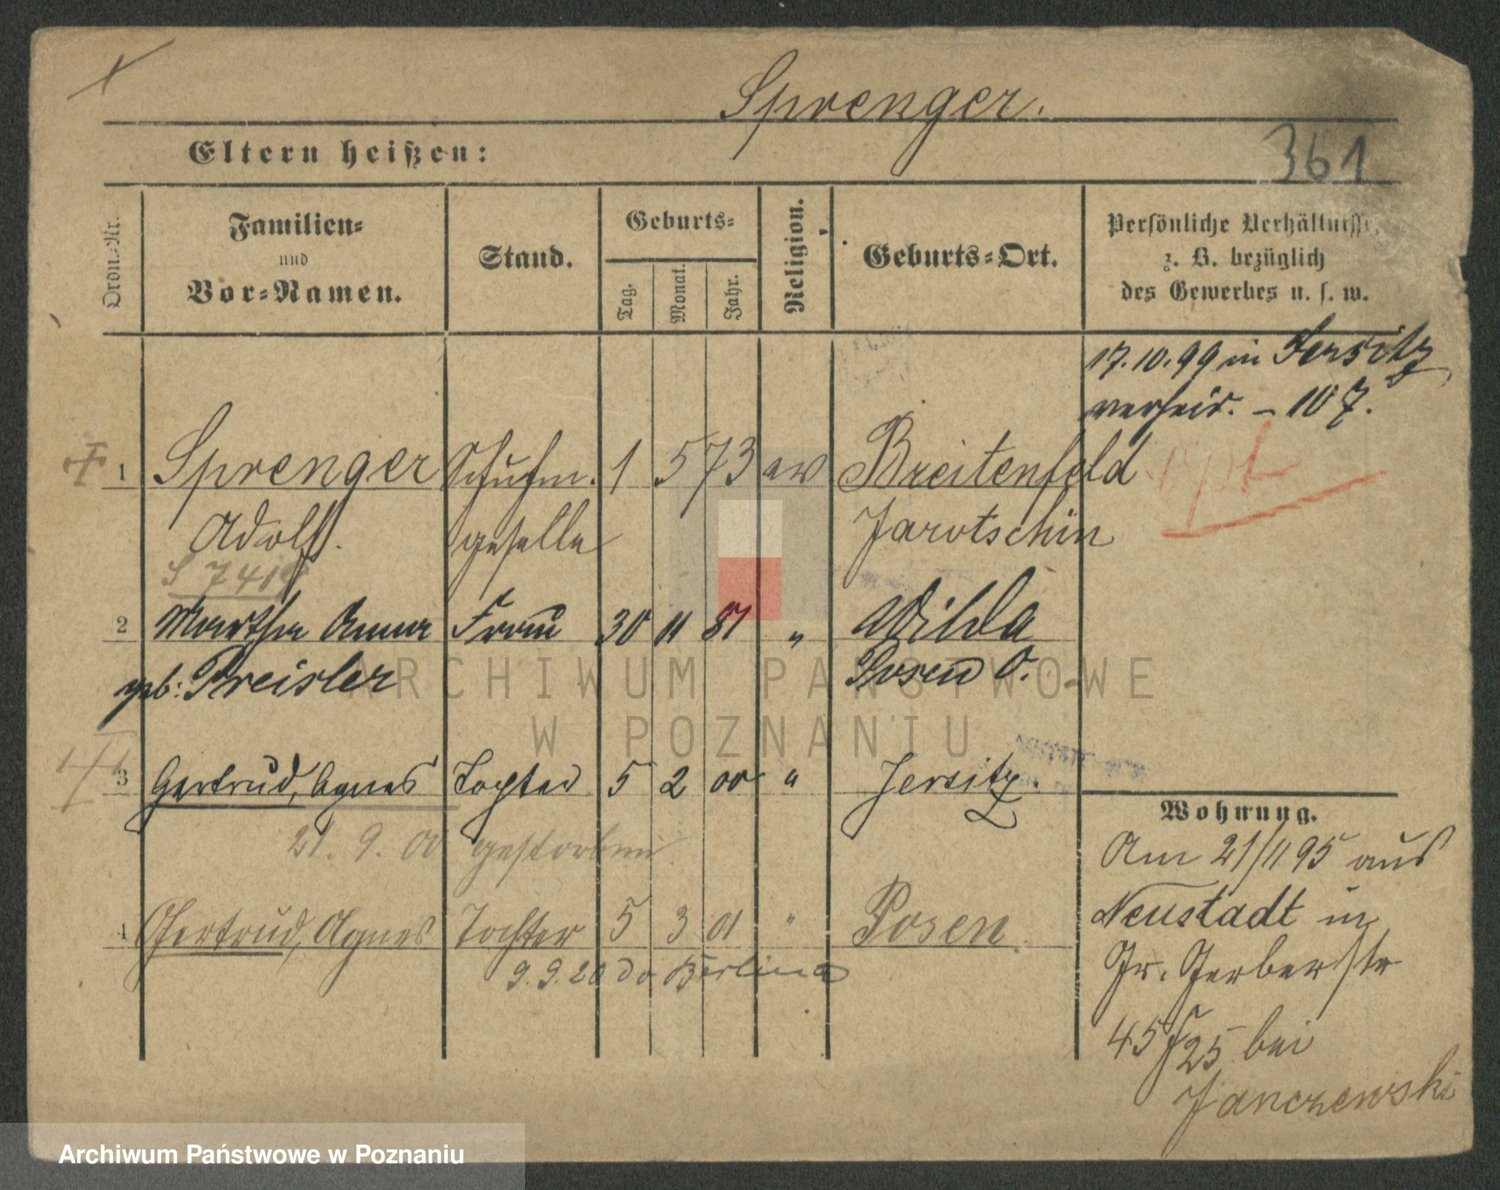 Sprenger.
Eltern heißen:
361
Ordn.-Nr.
Familien-
und
Vor-Namen.
Stand.
Geburts-
Tag.
Monat.
Jahr.
Religion.
Geburts-Ort.
Persönliche Verhältnisse,
z. B. bezüglich
des Gewerbes u. s. w.
17.10.99 in Jersitz
verheir. – 107.
1 Sprenger Schuhm. 1 5 73 ev Breitenfeld
Adolf. geselle Jarotschin
S 7418
2 Martha Anna Frau 30 11 81 " Wilda
geb: Preisler Posen O.
3 Gertrud, Agnes Tochter 5 2 00 " Jersitz.
21. 9. 00 gestorben
4 Gertrud, Agnes Tochter 5 3 01 " Posen
9.9.20 do Berlin
Wohnung.
Am 21/11 95 aus
Neustadt in
Gr. Gerberstr
45/25 bei
Janczewski
ARCHIWUM PAŃSTWOWE
W POZNANIU
Archiwum Państwowe w Poznaniu